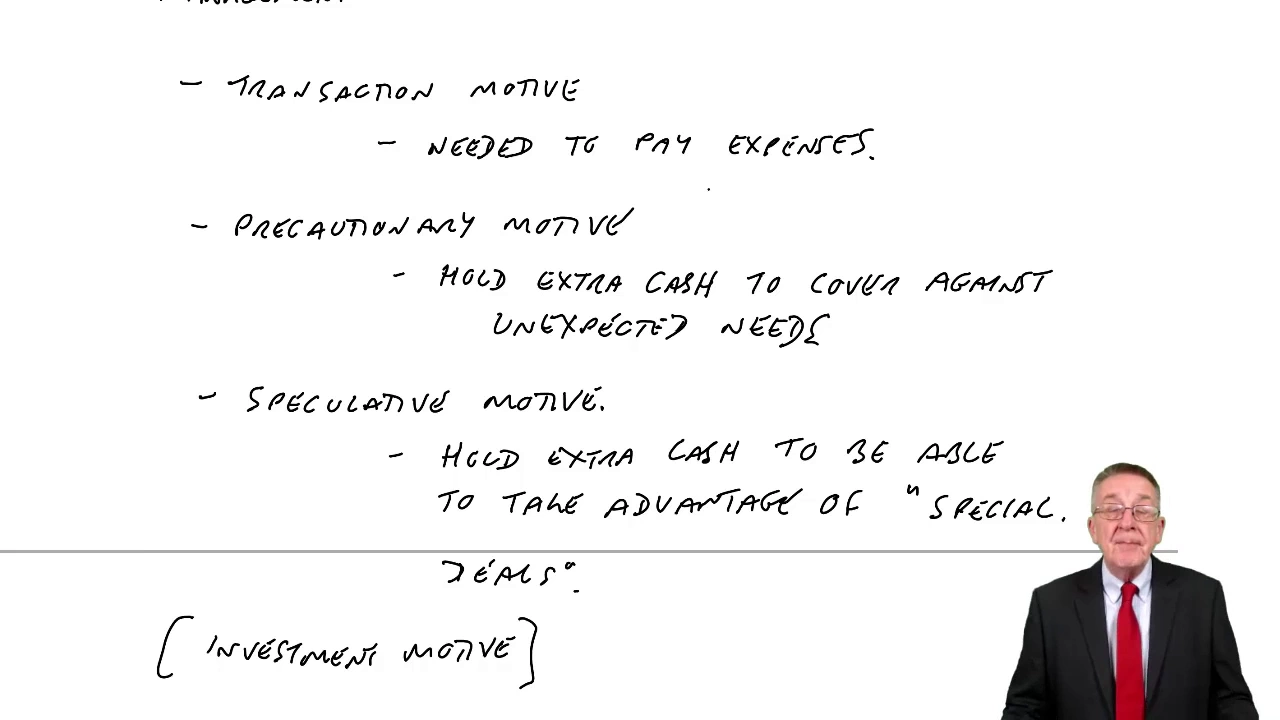 - TRANSACTION MOTIVE
- NEEDED TO PAY EXPENSES.
- PRECAUTIONARY MOTIVE
- HOLD EXTRA CASH TO COVER AGAINST
UNEXPECTED NEEDS
- SPECULATIVE MOTIVE.
- HOLD EXTRA CASH TO BE ABLE
TO TAKE ADVANTAGE OF "SPECIAL.
DEALS".
[INVESTMENT MOTIVE]